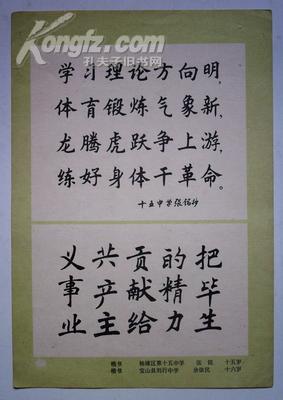 Kongfz.com
孔夫子旧书网
学习理论方向明，
体育锻炼气象新，
龙腾虎跃争上游，
练好身体干革命。
十五中学张铭抄
把毕生
的精力
贡献给
共产主
义事业
楷书 杨浦区第十五中学 张铭 十五岁
楷书 宝山县刘行中学 十六岁